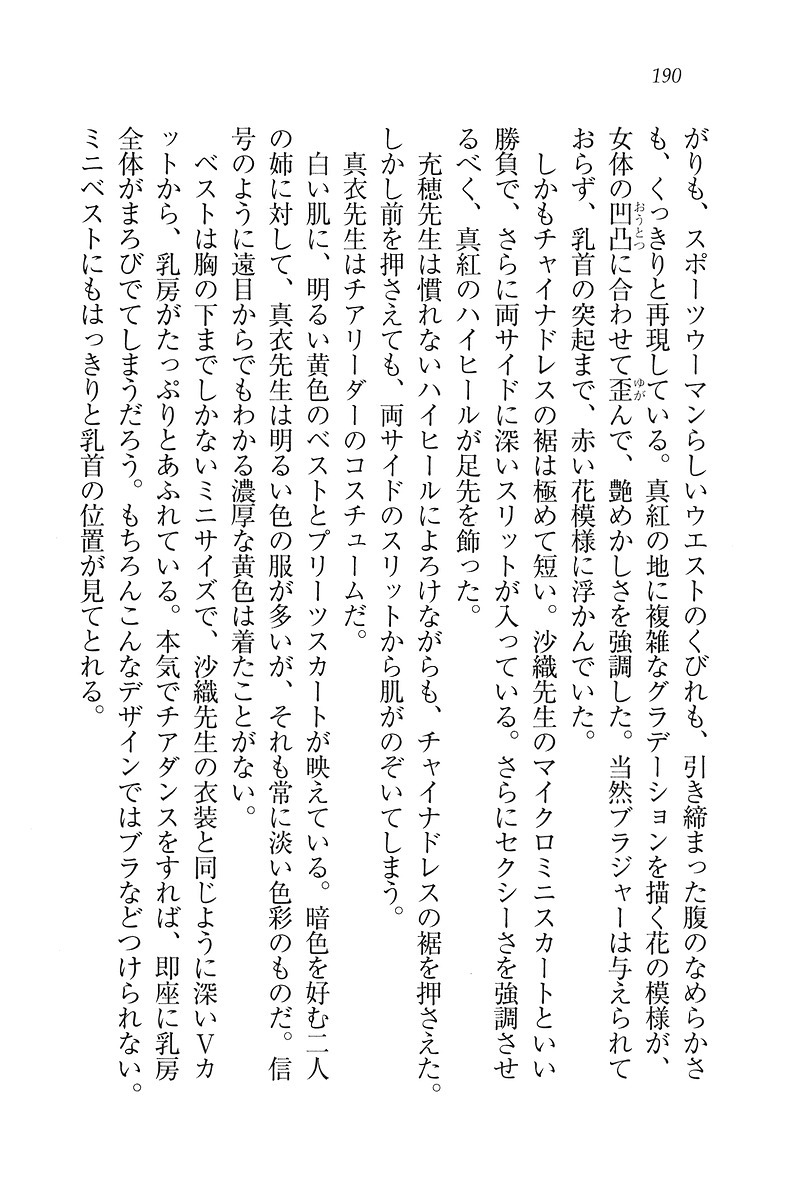 190
がりも、スポーツウーマンらしいウエストのくびれも、引き締まった腹のなめらかさ
も、くっきりと再現している。真紅の地に複雑なグラデーションを描く花の模様が、
女体の凹凸に合わせて歪んで、艶めかしさを強調した。当然ブラジャーは与えられて
おらず、乳首の突起まで、赤い花模様に浮かんでいた。
しかもチャイナドレスの裾は極めて短い。沙織先生のマイクロミニスカートといい
勝負で、さらに両サイドに深いスリットが入っている。さらにセクシーさを強調させ
るべく、真紅のハイヒールが足先を飾った。
充穂先生は慣れないハイヒールによろけながらも、チャイナドレスの裾を押さえた。
しかし前を押さえても、両サイドのスリットから肌がのぞいてしまう。
真衣先生はチアリーダーのコスチュームだ。
白い肌に、明るい黄色のベストとプリーツスカートが映えている。暗色を好む二人
の姉に対して、真衣先生は明るい色の服が多いが、それも常に淡い色彩のものだ。信
号のように遠目からでもわかる濃厚な黄色は着たことがない。
ベストは胸の下までしかないミニサイズで、沙織先生の衣装と同じように深いVカ
ットから、乳房がたっぷりとあふれている。本気でチアダンスをすれば、即座に乳房
全体がまろびでてしまうだろう。もちろんこんなデザインではブラなどつけられない。
ミニベストにもはっきりと乳首の位置が見てとれる。